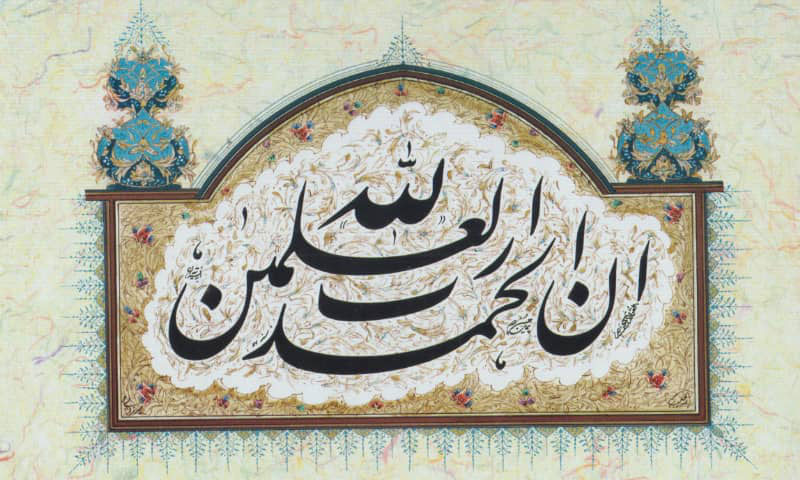 ان الحمد لله رب العلمین